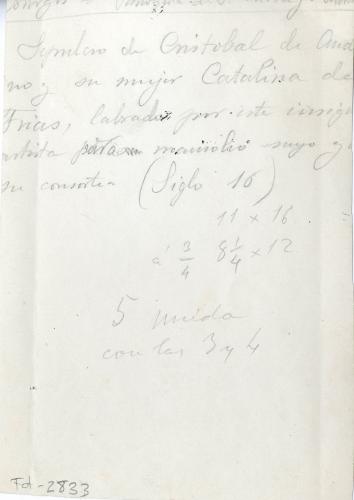 Sepulcro de Cristobal de And
ino y su mujer Catalina de
Frias, labrado por este insig
artista para mausolio suyo y
su consorte (Siglo 16)
11 x 16
a 3/4 8 1/4 x 12
5 unida
con las 3 y 4
Fot-2833